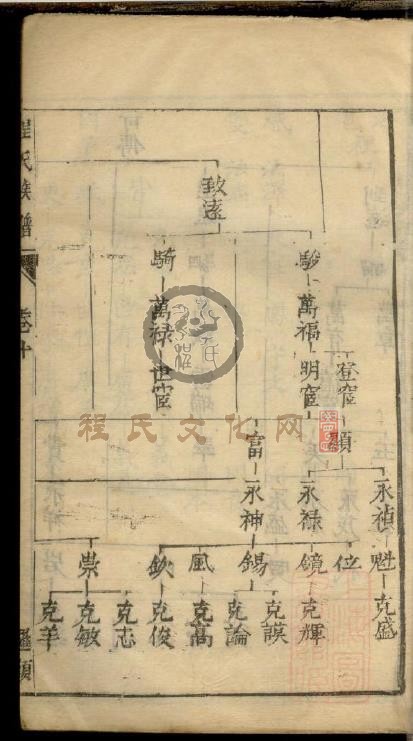 程氏族譜
卷十
致遠
駿
騎
萬福
萬祿
明宦
世宦
登宦
頴
富
永禎
永祿
永神
魁
位
鏡
錫
風
欽
崇
克盛
克輝
克謨
克論
克高
克俊
克志
克敏
克羊
程氏文化网